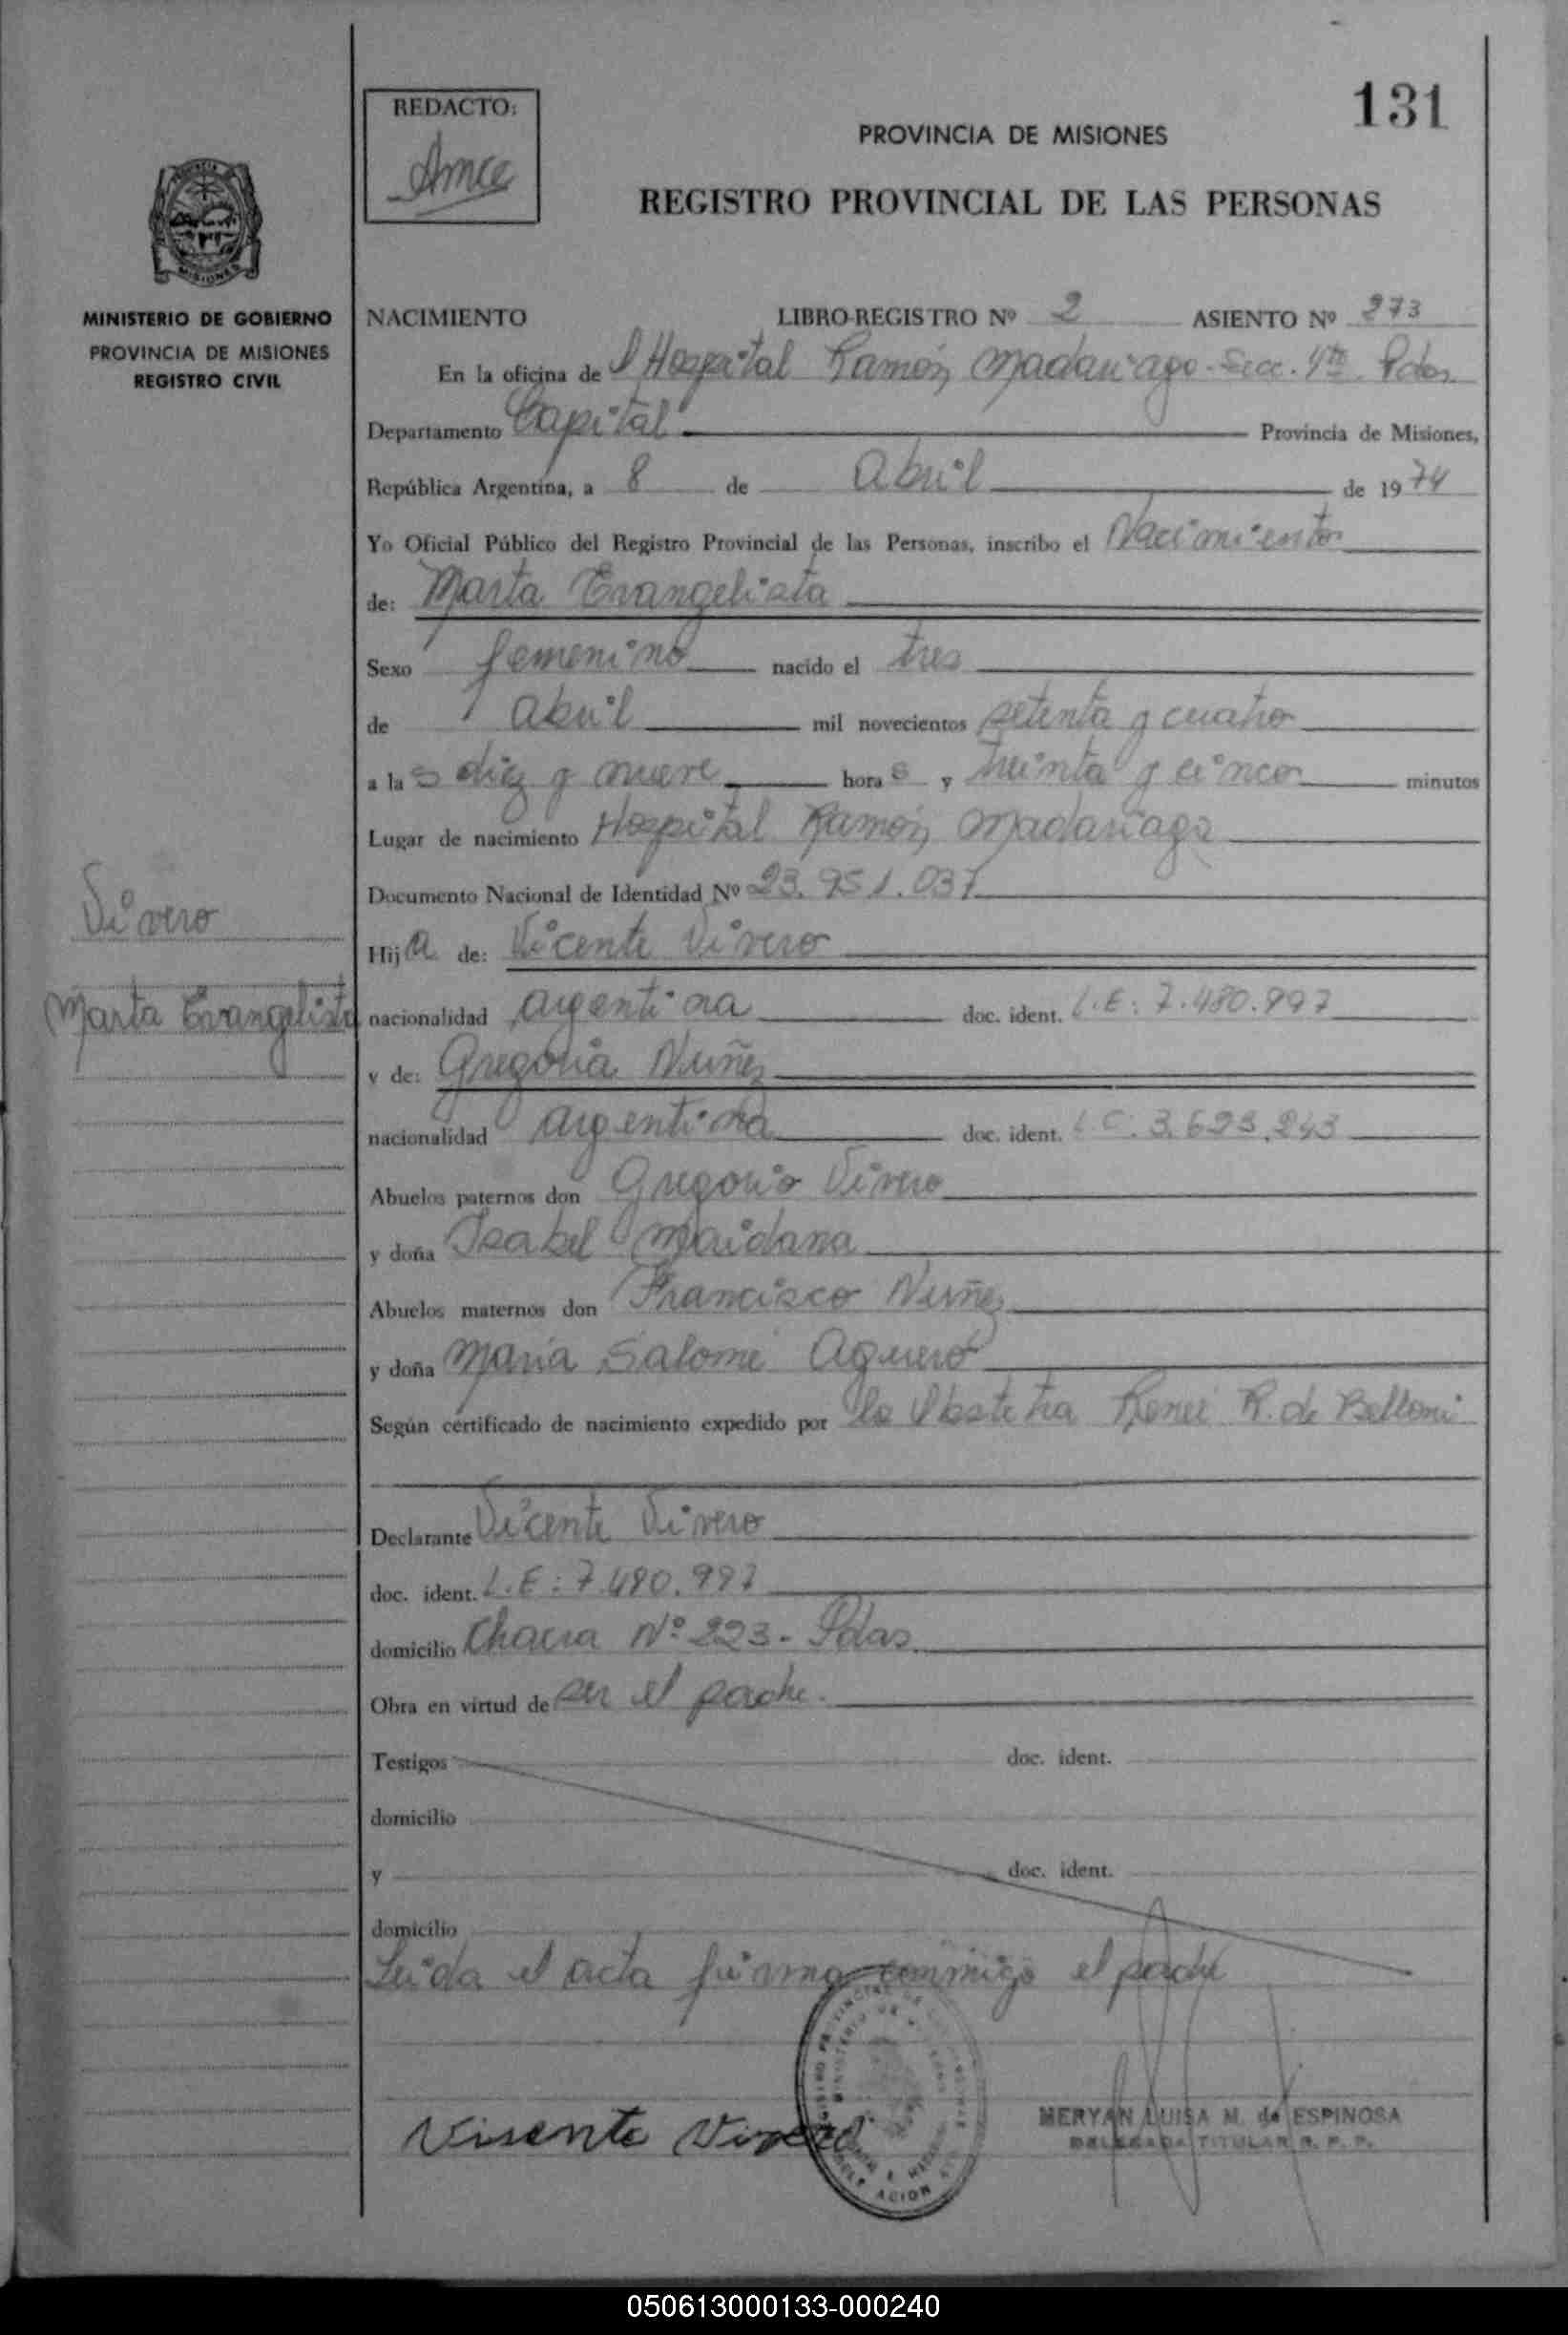 131
REDACTO:
PROVINCIA DE MISIONES
REGISTRO PROVINCIAL DE LAS PERSONAS
MISIONES
MINISTERIO DE GOBIERNO
PROVINCIA DE MISIONES
REGISTRO CIVIL
NACIMIENTO LIBRO-REGISTRO Nº 2 ASIENTO Nº 273
En la oficina de l Hospital Ramón Madariaga - Secc. 4ta Pdas
Departamento Capital Provincia de Misiones,
República Argentina, a 8 de Abril de 1974
Yo Oficial Público del Registro Provincial de las Personas, inscribo el Nacimiento
de: Marta Evangelista
Sexo femenino nacido el tres
de Abril mil novecientos setenta y cuatro
a las diez y nueve horas y treinta y cinco minutos
Lugar de nacimiento Hospital Ramón Madariaga
Documento Nacional de Identidad Nº 23.951.037
Vivero
Marta Evangelista
Hija de: Vicente Vivero
nacionalidad argentina doc. ident. L.E: 7.480.997
y de: Gregoria Nuñez
nacionalidad argentina doc. ident. L.C. 3.623.243
Abuelos paternos don Gregorio Vivero
y doña Isabel Maidana
Abuelos maternos don Francisco Nuñez
y doña Maria Salomé Aguero
Según certificado de nacimiento expedido por la Obstetra Reneé R. de Belloni
Declarante Vicente Vivero
doc. ident. L.E: 7.480.997
domicilio Chacra Nº 223 - Pdas
Obra en virtud de ser el padre.
Testigos doc. ident.
domicilio
y doc. ident.
domicilio
Leida el acta firma conmigo el padre
Visente Vivero
MERYAN LUISA M. de ESPINOSA
DELEGADA TITULAR R. P. P.
050613000133-000240